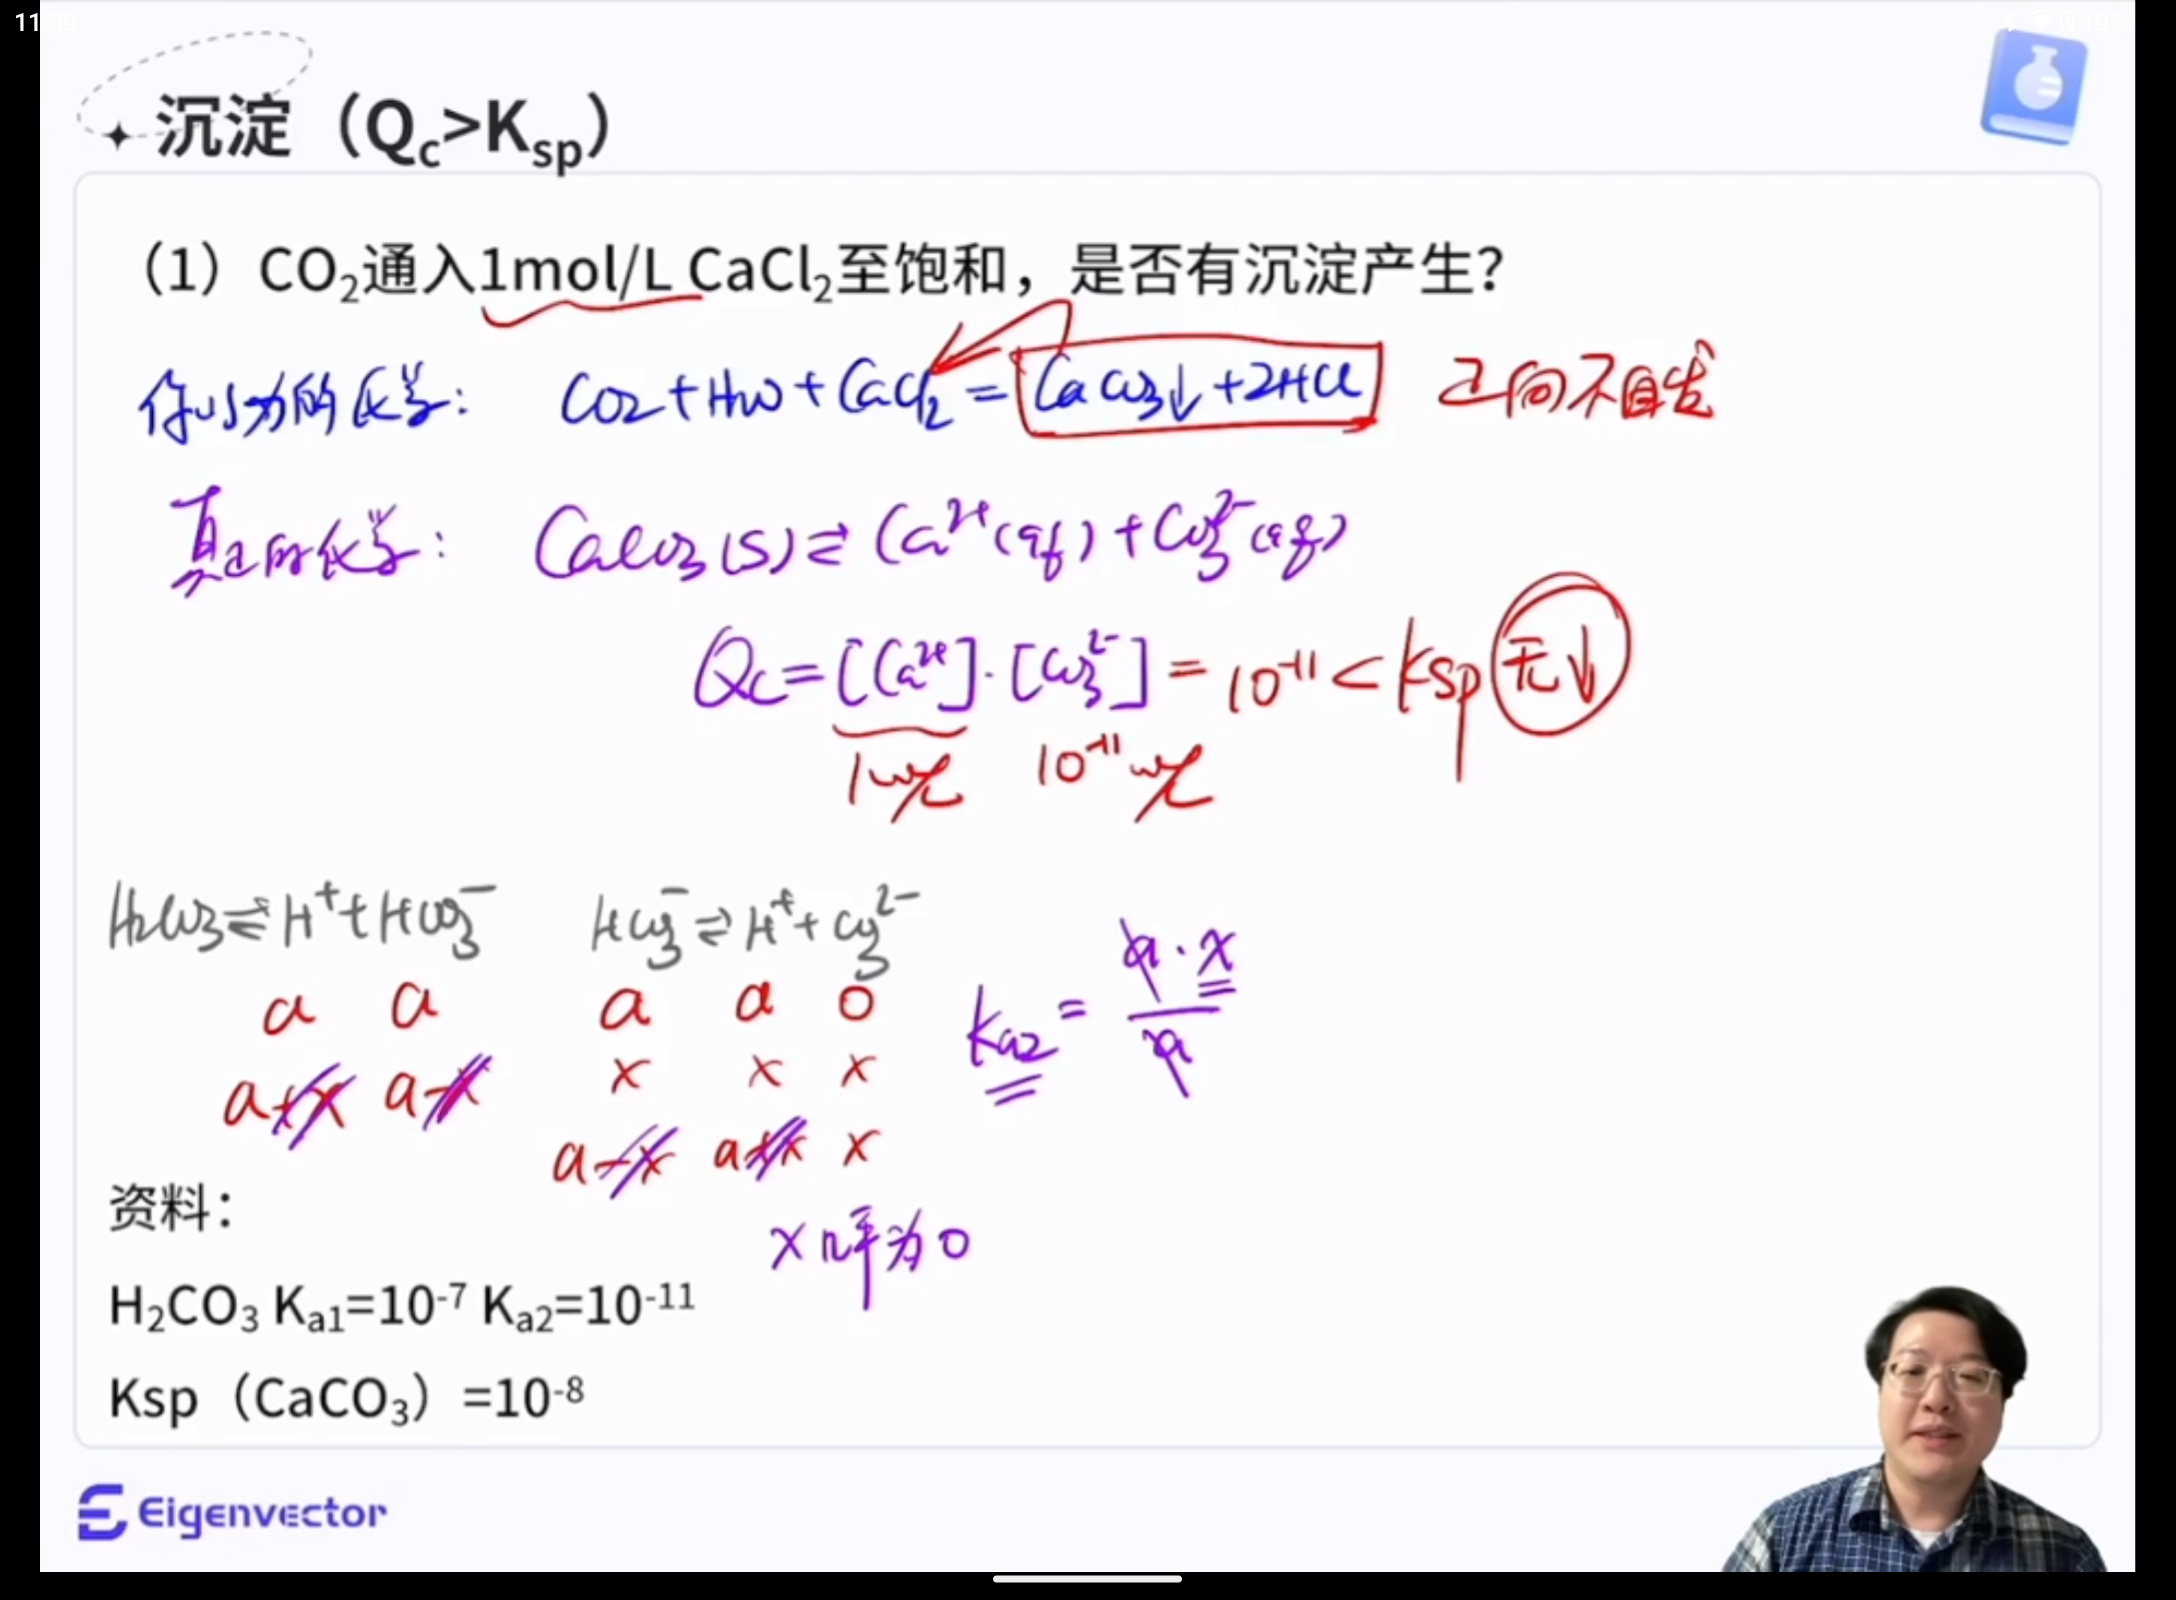 11:39
沉淀（Qc>Ksp）
（1）CO₂通入1mol/L CaCl₂至饱和，是否有沉淀产生？
你以为的化学： CO₂+H₂O+CaCl₂=CaCO₃↓+2HCl 正向不自发
真正的化学： CaCO₃(s)⇌Ca²⁺(aq)+CO₃²⁻(aq)
Qc=[Ca²⁺]·[CO₃²⁻]=10⁻¹¹<Ksp 无↓
1mol/L 10⁻¹¹mol/L
H₂CO₃⇌H⁺+HCO₃⁻ HCO₃⁻⇌H⁺+CO₃²⁻
a a a a 0 Ka2=a·x/a
x x x
a+x a-x
a-x a+x x
x几乎为0
资料：
H₂CO₃ Ka1=10⁻⁷ Ka2=10⁻¹¹
Ksp（CaCO₃）=10⁻⁸
Eigenvector